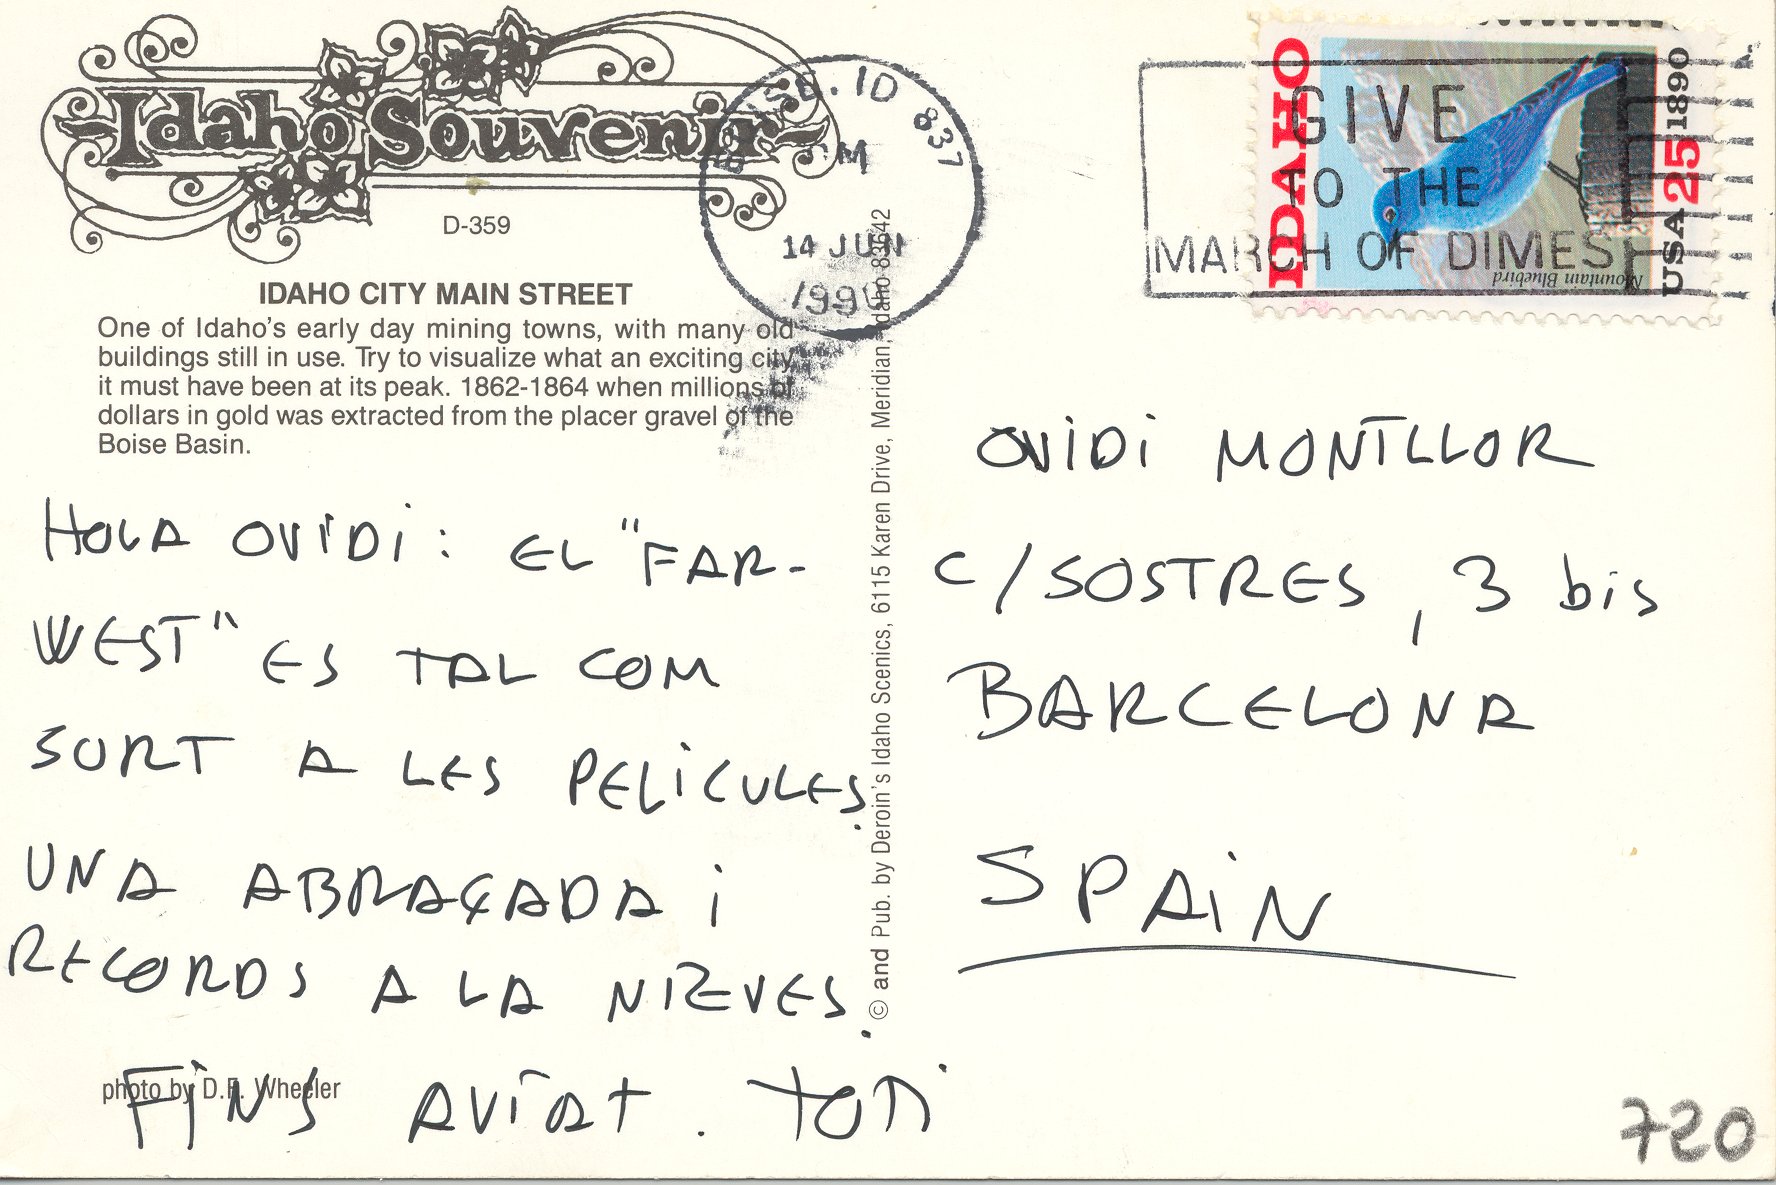 Idaho Souvenir
D-359
IDAHO CITY MAIN STREET
One of Idaho's early day mining towns, with many old
buildings still in use. Try to visualize what an exciting city
it must have been at its peak. 1862-1864 when millions of
dollars in gold was extracted from the placer gravel of the
Boise Basin.
HOLA OVIDI: EL "FAR-
WEST" ES TAL COM
SURT A LES PELICULES.
UNA ABRAÇADA I
RECORDS A LA NIEVES.
FINS AVIAT. TOTI
photo by D.F. Wheeler
© and Pub. by Deroin's Idaho Scenics, 6115 Karen Drive, Meridian, Idaho 83642
BOISE. ID 837
PM
14 JUN
GIVE
TO THE
MARCH OF DIMES
IDAHO
Mountain Bluebird
USA 25 1890
OVIDI MONTLLOR
C/SOSTRES, 3 bis
BARCELONA
SPAIN
720